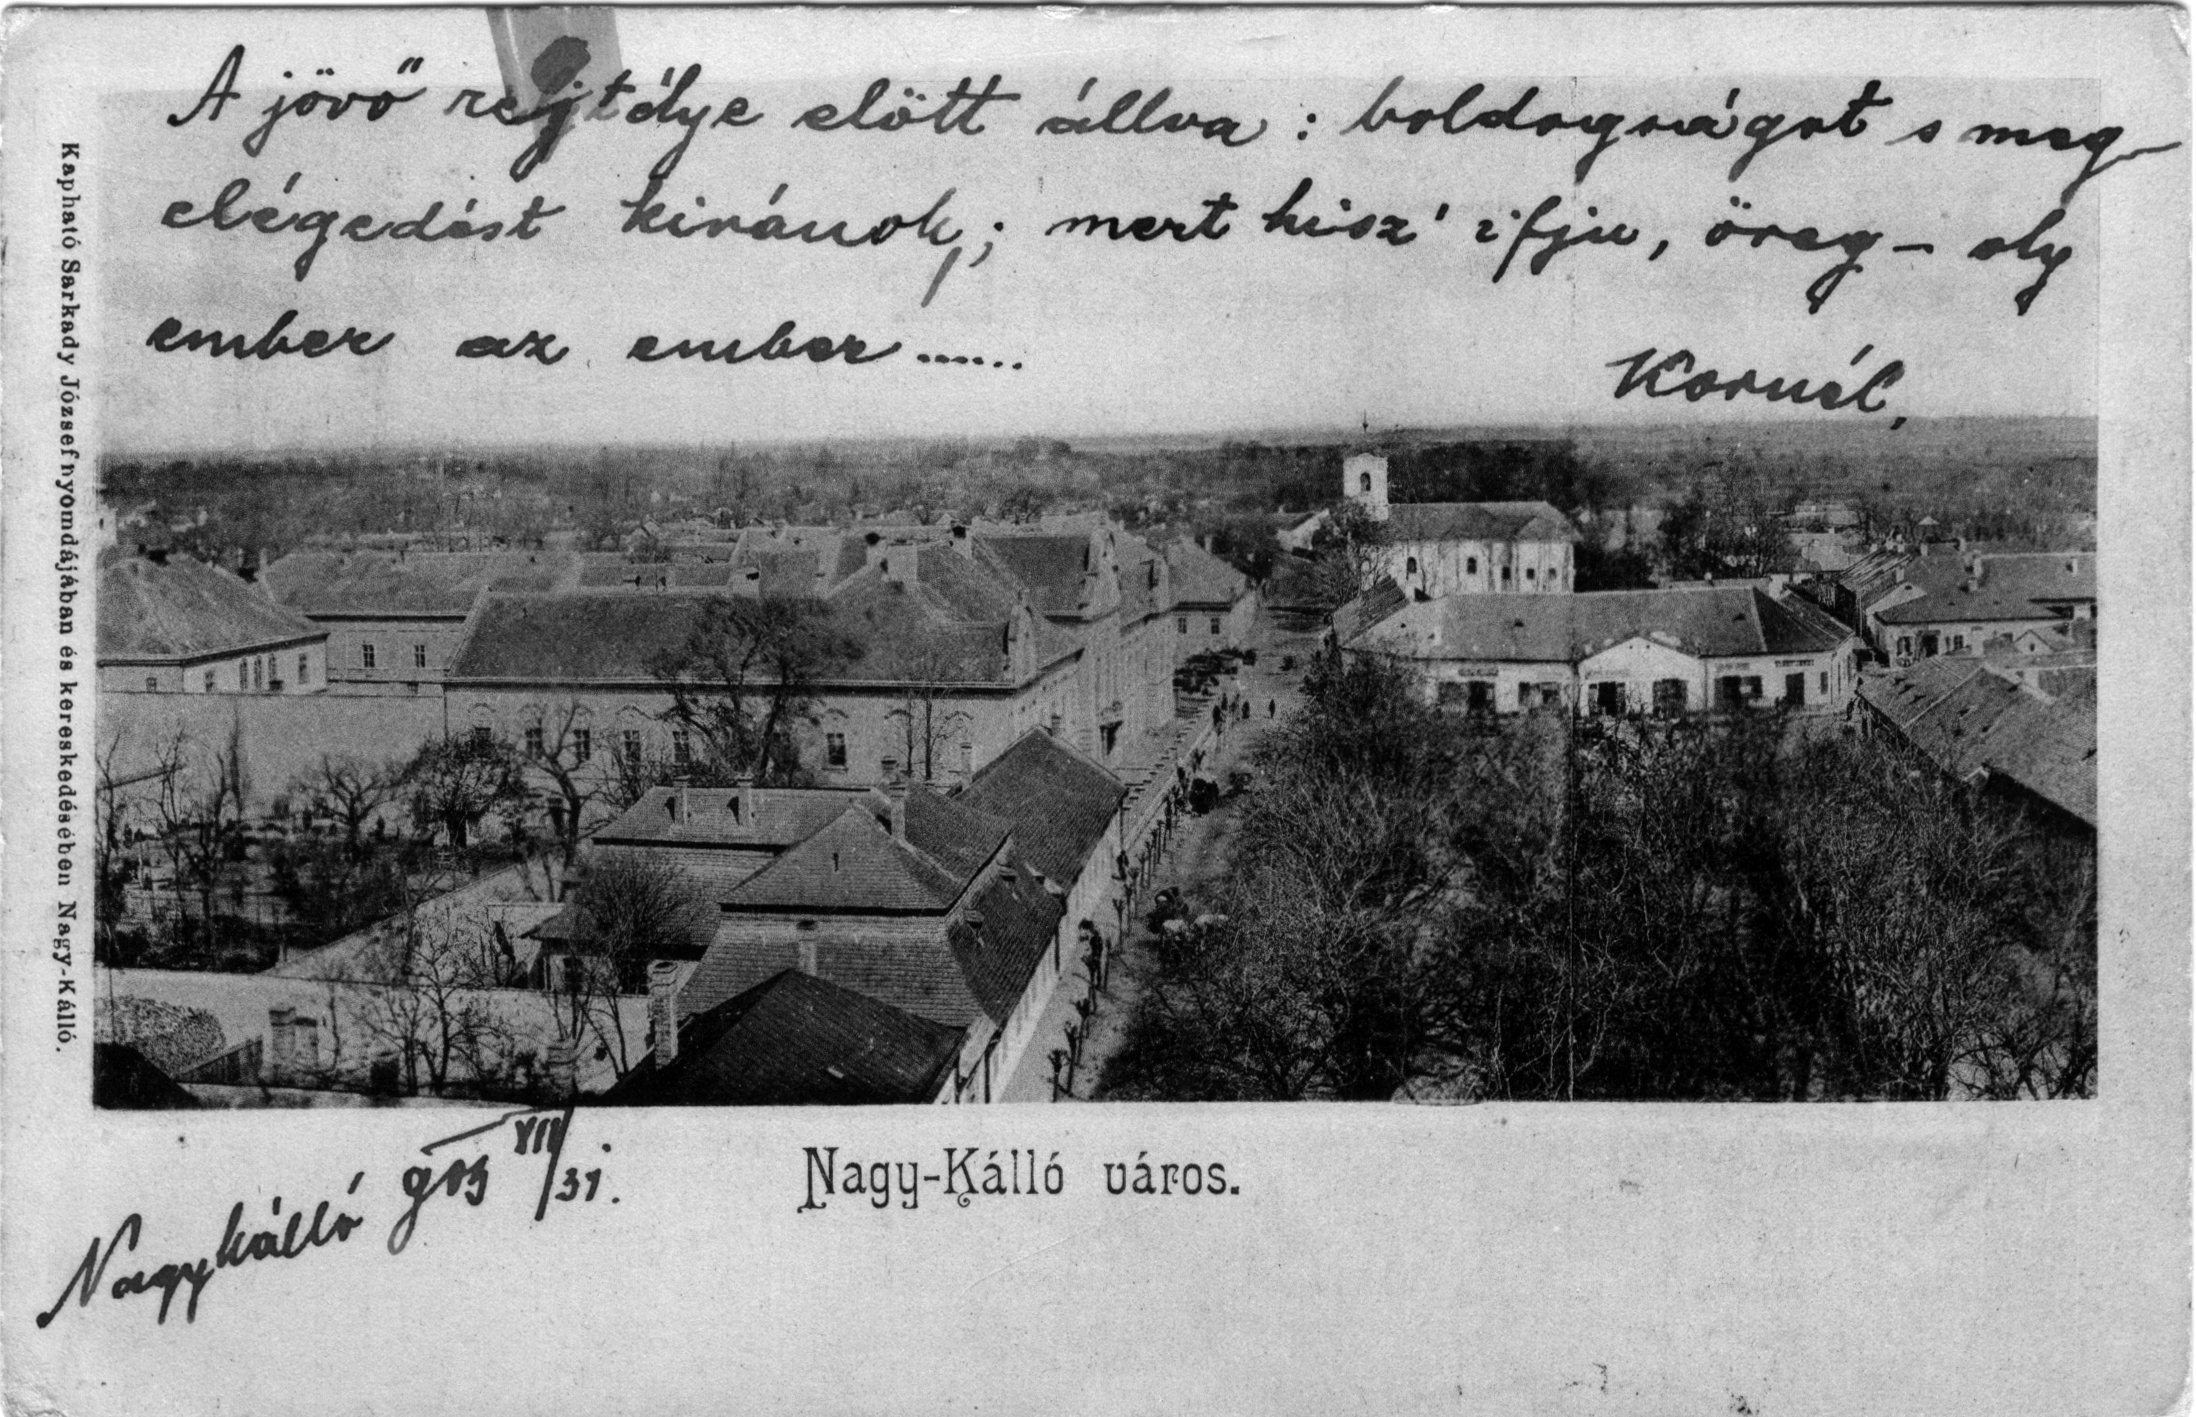 A jövő rejtélye elött állva : boldogságot s meg-
elégedést kivánok; mert hisz' ifju, öreg – oly
ember az ember ......
Kornél,
Kapható Sarkady József nyomdájában és kereskedésében Nagy-Kálló.
Nagykálló 903 VII/31.
Nagy-Kálló város.